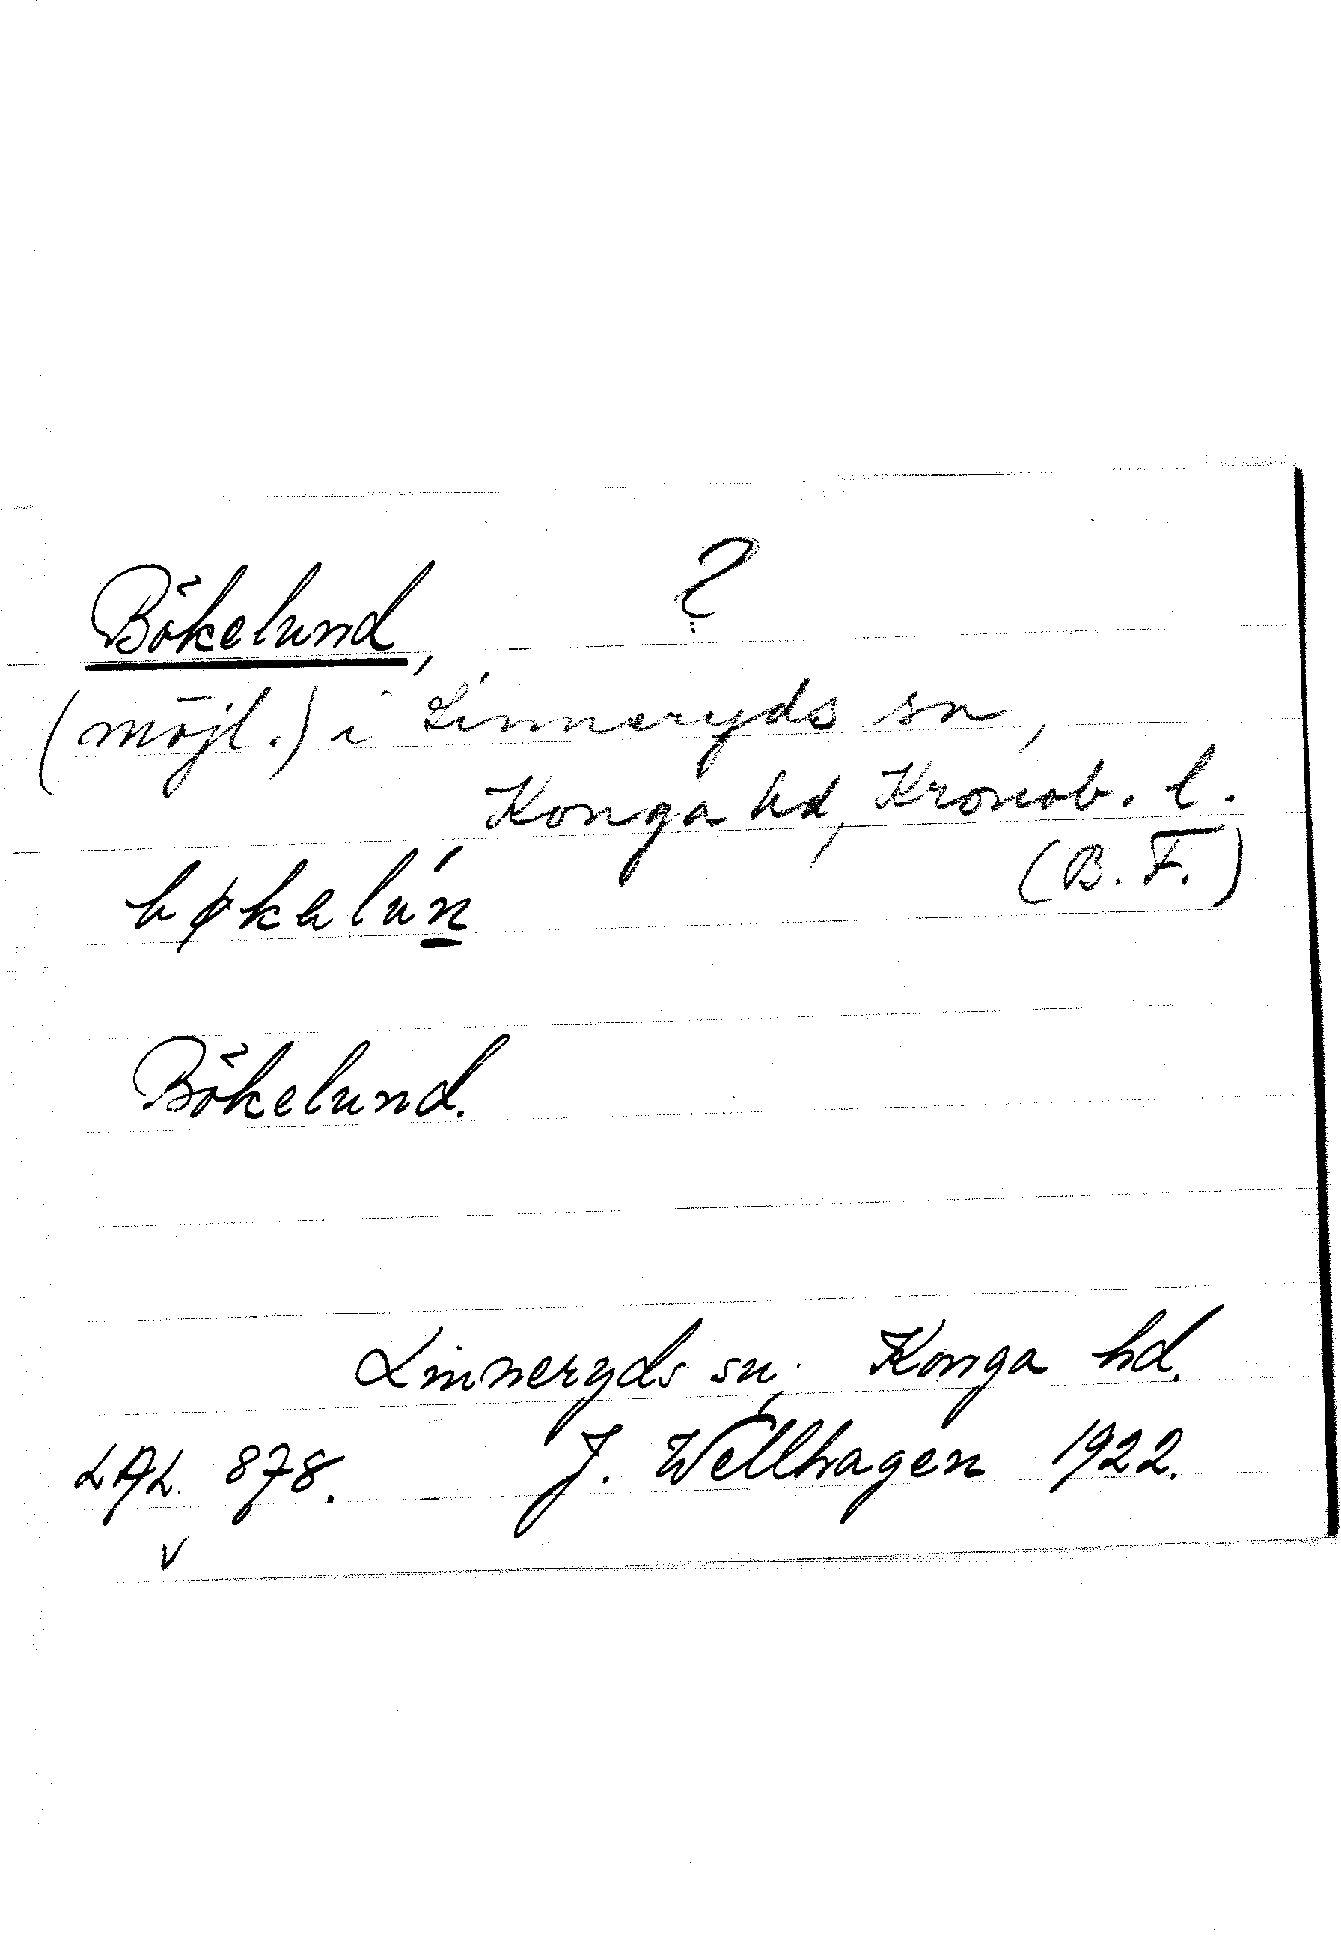 Bökelund, ?
(möjl.) i Linneryds sn,
Konga hd, Kronob. l.
(B. F.)
bøkalún
Bökelund.
Linneryds sn, Konga hd.
LAL 878. J. Wellhagen 1922.
v